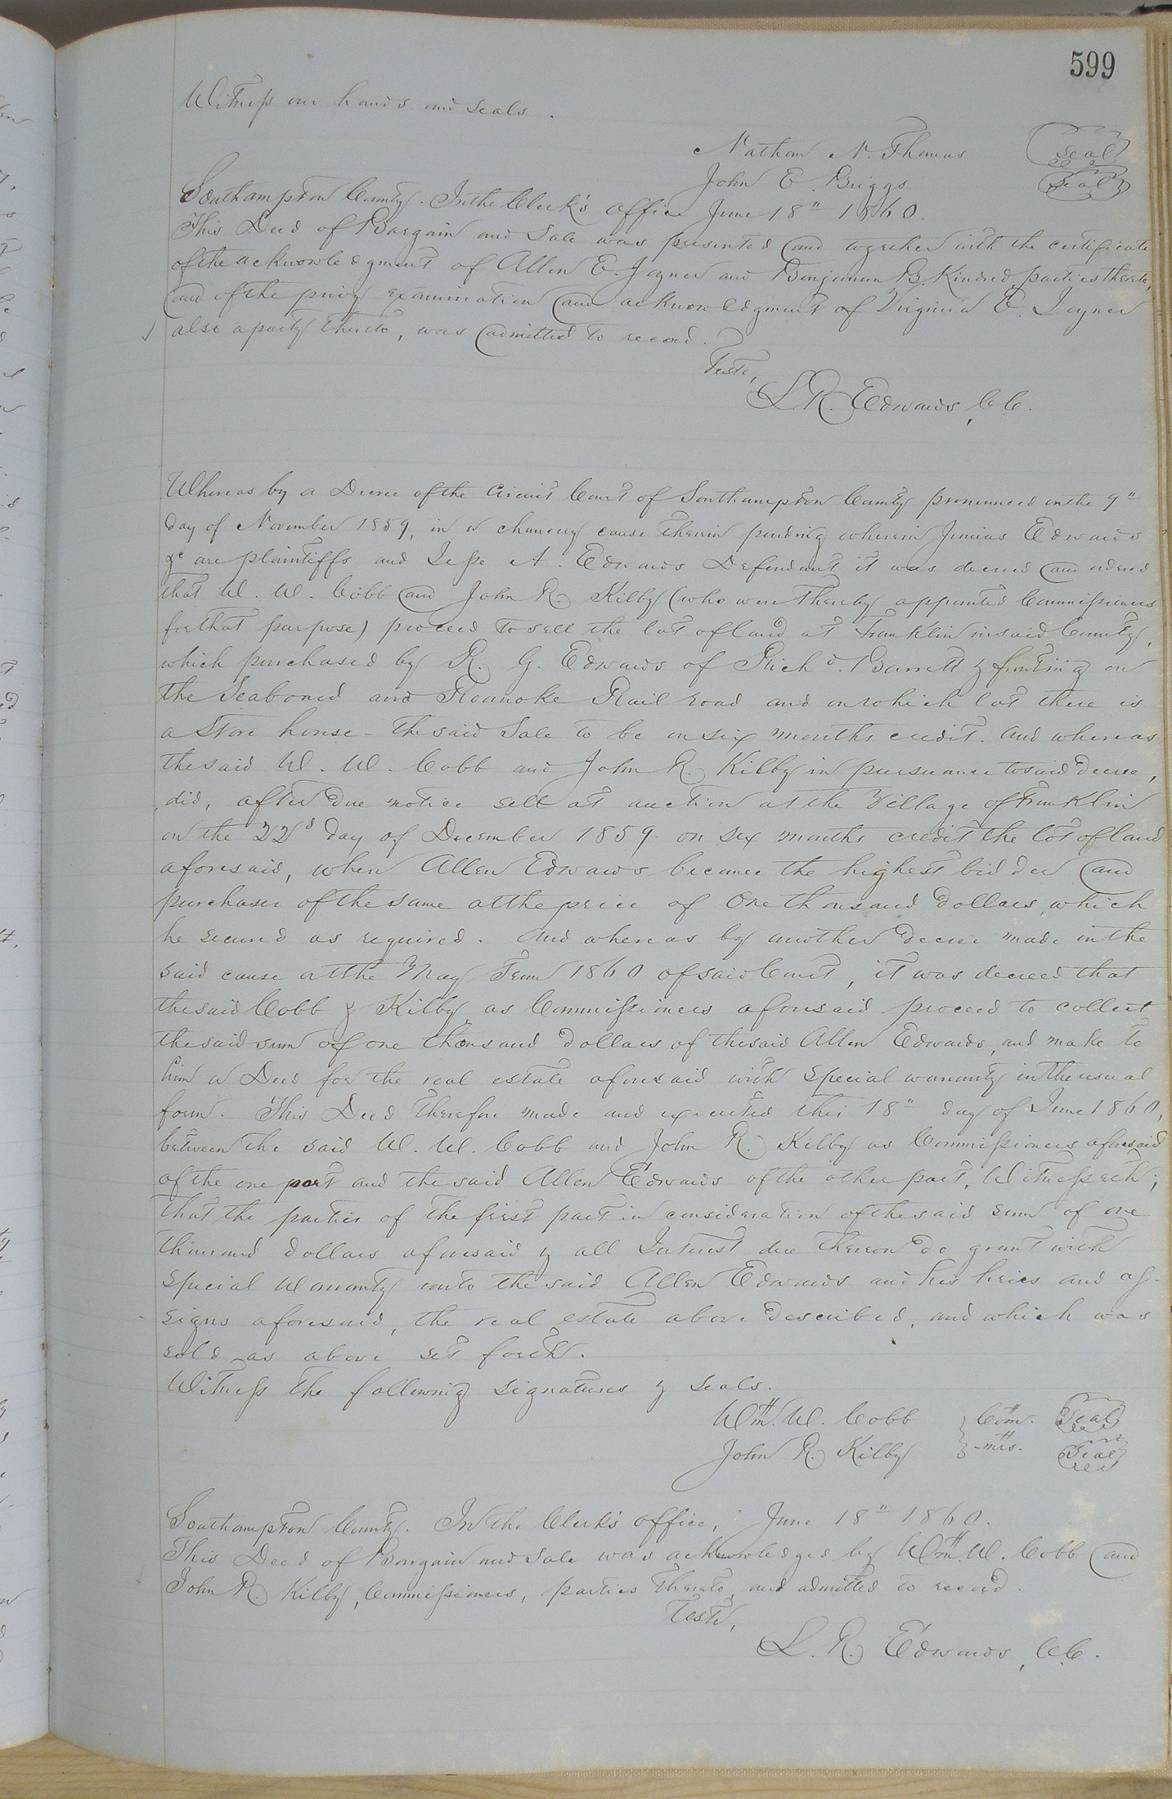 599
Witness our hands and seals.
Nathan N. Thomas Seal
John E. Briggs Seal
Southampton County. In the Clerk's office June 18" 1860.
This Deed of Bargain and Sale was presented and together with the certificate
of the acknowledgment of Allen E. Joyner and Benjamin B. Kindred parties thereto,
and of the privy examination and acknowledgment of Virginia E. Joyner
also a party thereto, was admitted to record.
Teste,
L. R. Edwards, C.C.
Whereas by a Decree of the Circuit Court of Southampton County pronounced on the 9"
day of November 1859, in a chancery cause therein pending wherein Junius Edwards
&c are plaintiffs and Jesse A. Edwards Defendant it was decreed and ordered
that W. W. Cobb and John R. Kilby (who were thereby appointed Commissioners
for that purpose) proceed to sell the lot of land at Franklin in said County,
which purchased by R. G. Edwards of Richd. Barrett & fronting on
the Seaboard and Roanoke Rail road and on which lot there is
a Store house - the said Sale to be on six months credit. And whereas
the said W. W. Cobb and John R. Kilby in pursuance to said decree,
did, after due notice sell at auction at the Village of Franklin
on the 22d day of December 1859 on six months credit the lot of land
aforesaid, when Allen Edwards became the highest bidder and
purchaser of the same at the price of One thousand Dollars, which
he secured as required. And whereas by another decree made in the
said cause at the May Term 1860 of said Court, it was decreed that
the said Cobb & Kilby, as Commissioners aforesaid proceed to collect
the said sum of one thousand dollars of the said Allen Edwards, and make to
him a Deed for the real estate aforesaid with special warranty in the usual
form. This Deed therefore made and executed this 18" day of June 1860,
between the said W. W. Cobb and John R. Kilby as Commissioners aforesaid
of the one part and the said Allen Edwards of the other part, Witnesseth;
that the parties of the first part in consideration of the said sum of one
thousand dollars aforesaid & all Interest due thereon do grant with
special warranty unto the said Allen Edwards and his heirs and as-
signs aforesaid, the real estate above described, and which was
sold as above set forth.
Witness the following signatures & seals.
Wm. W. Cobb } Com. Seal
John R. Kilby } -mrs. Seal
Southampton County. In the Clerk's office, June 18" 1860.
This Deed of Bargain and Sale was acknowledged by Wm. W. Cobb and
John R. Kilby, Commissioners, parties thereto, and admitted to record.
Teste,
L. R. Edwards, C.C.